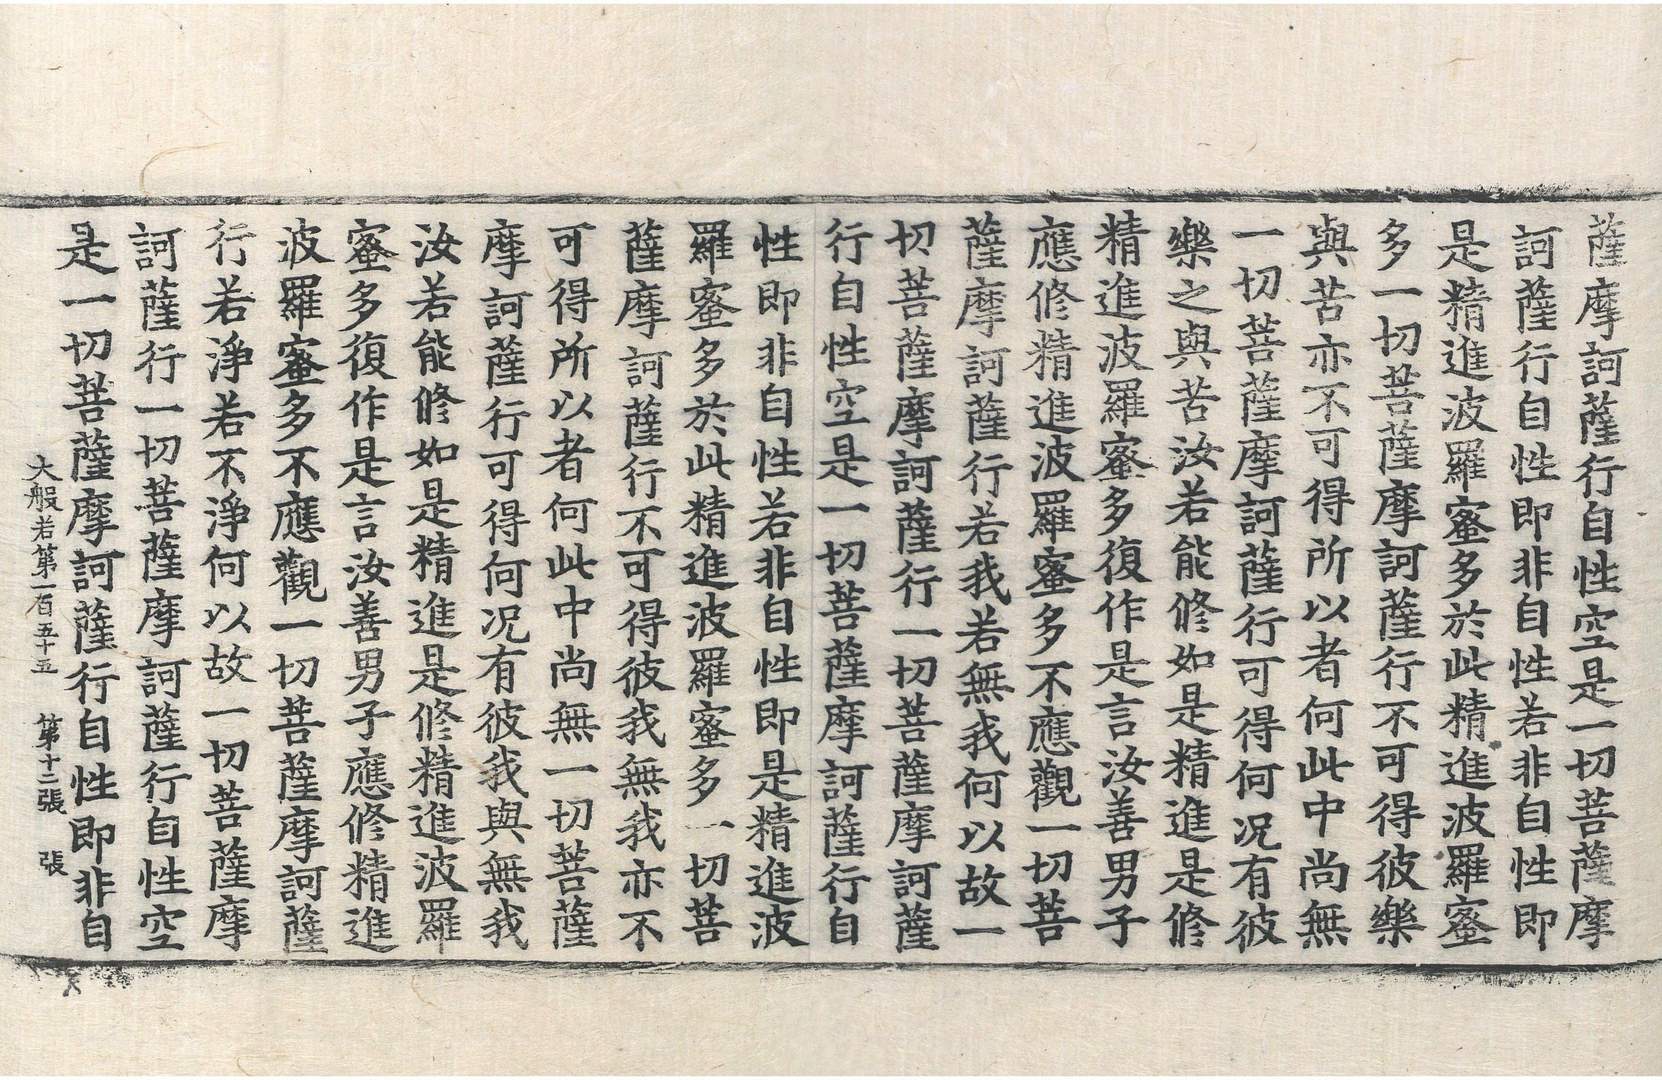 薩摩訶薩行自性空是一切菩薩摩
訶薩行自性即非自性若非自性即
是精進波羅蜜多於此精進波羅蜜
多一切菩薩摩訶薩行不可得彼樂
與苦亦不可得所以者何此中尚無
一切菩薩摩訶薩行可得何况有彼
樂之與苦汝若能修如是精進是修
精進波羅蜜多復作是言汝善男子
應修精進波羅蜜多不應觀一切菩
薩摩訶薩行若我若無我何以故一
切菩薩摩訶薩行一切菩薩摩訶薩
行自性空是一切菩薩摩訶薩行自
性即非自性若非自性即是精進波
羅蜜多於此精進波羅蜜多一切菩
薩摩訶薩行不可得彼我無我亦不
可得所以者何此中尚無一切菩薩
摩訶薩行可得何况有彼我與無我
汝若能修如是精進是修精進波羅
蜜多復作是言汝善男子應修精進
波羅蜜多不應觀一切菩薩摩訶薩
行若淨若不淨何以故一切菩薩摩
訶薩行一切菩薩摩訶薩行自性空
是一切菩薩摩訶薩行自性即非自
大般若第一百五十五 第十二張 張